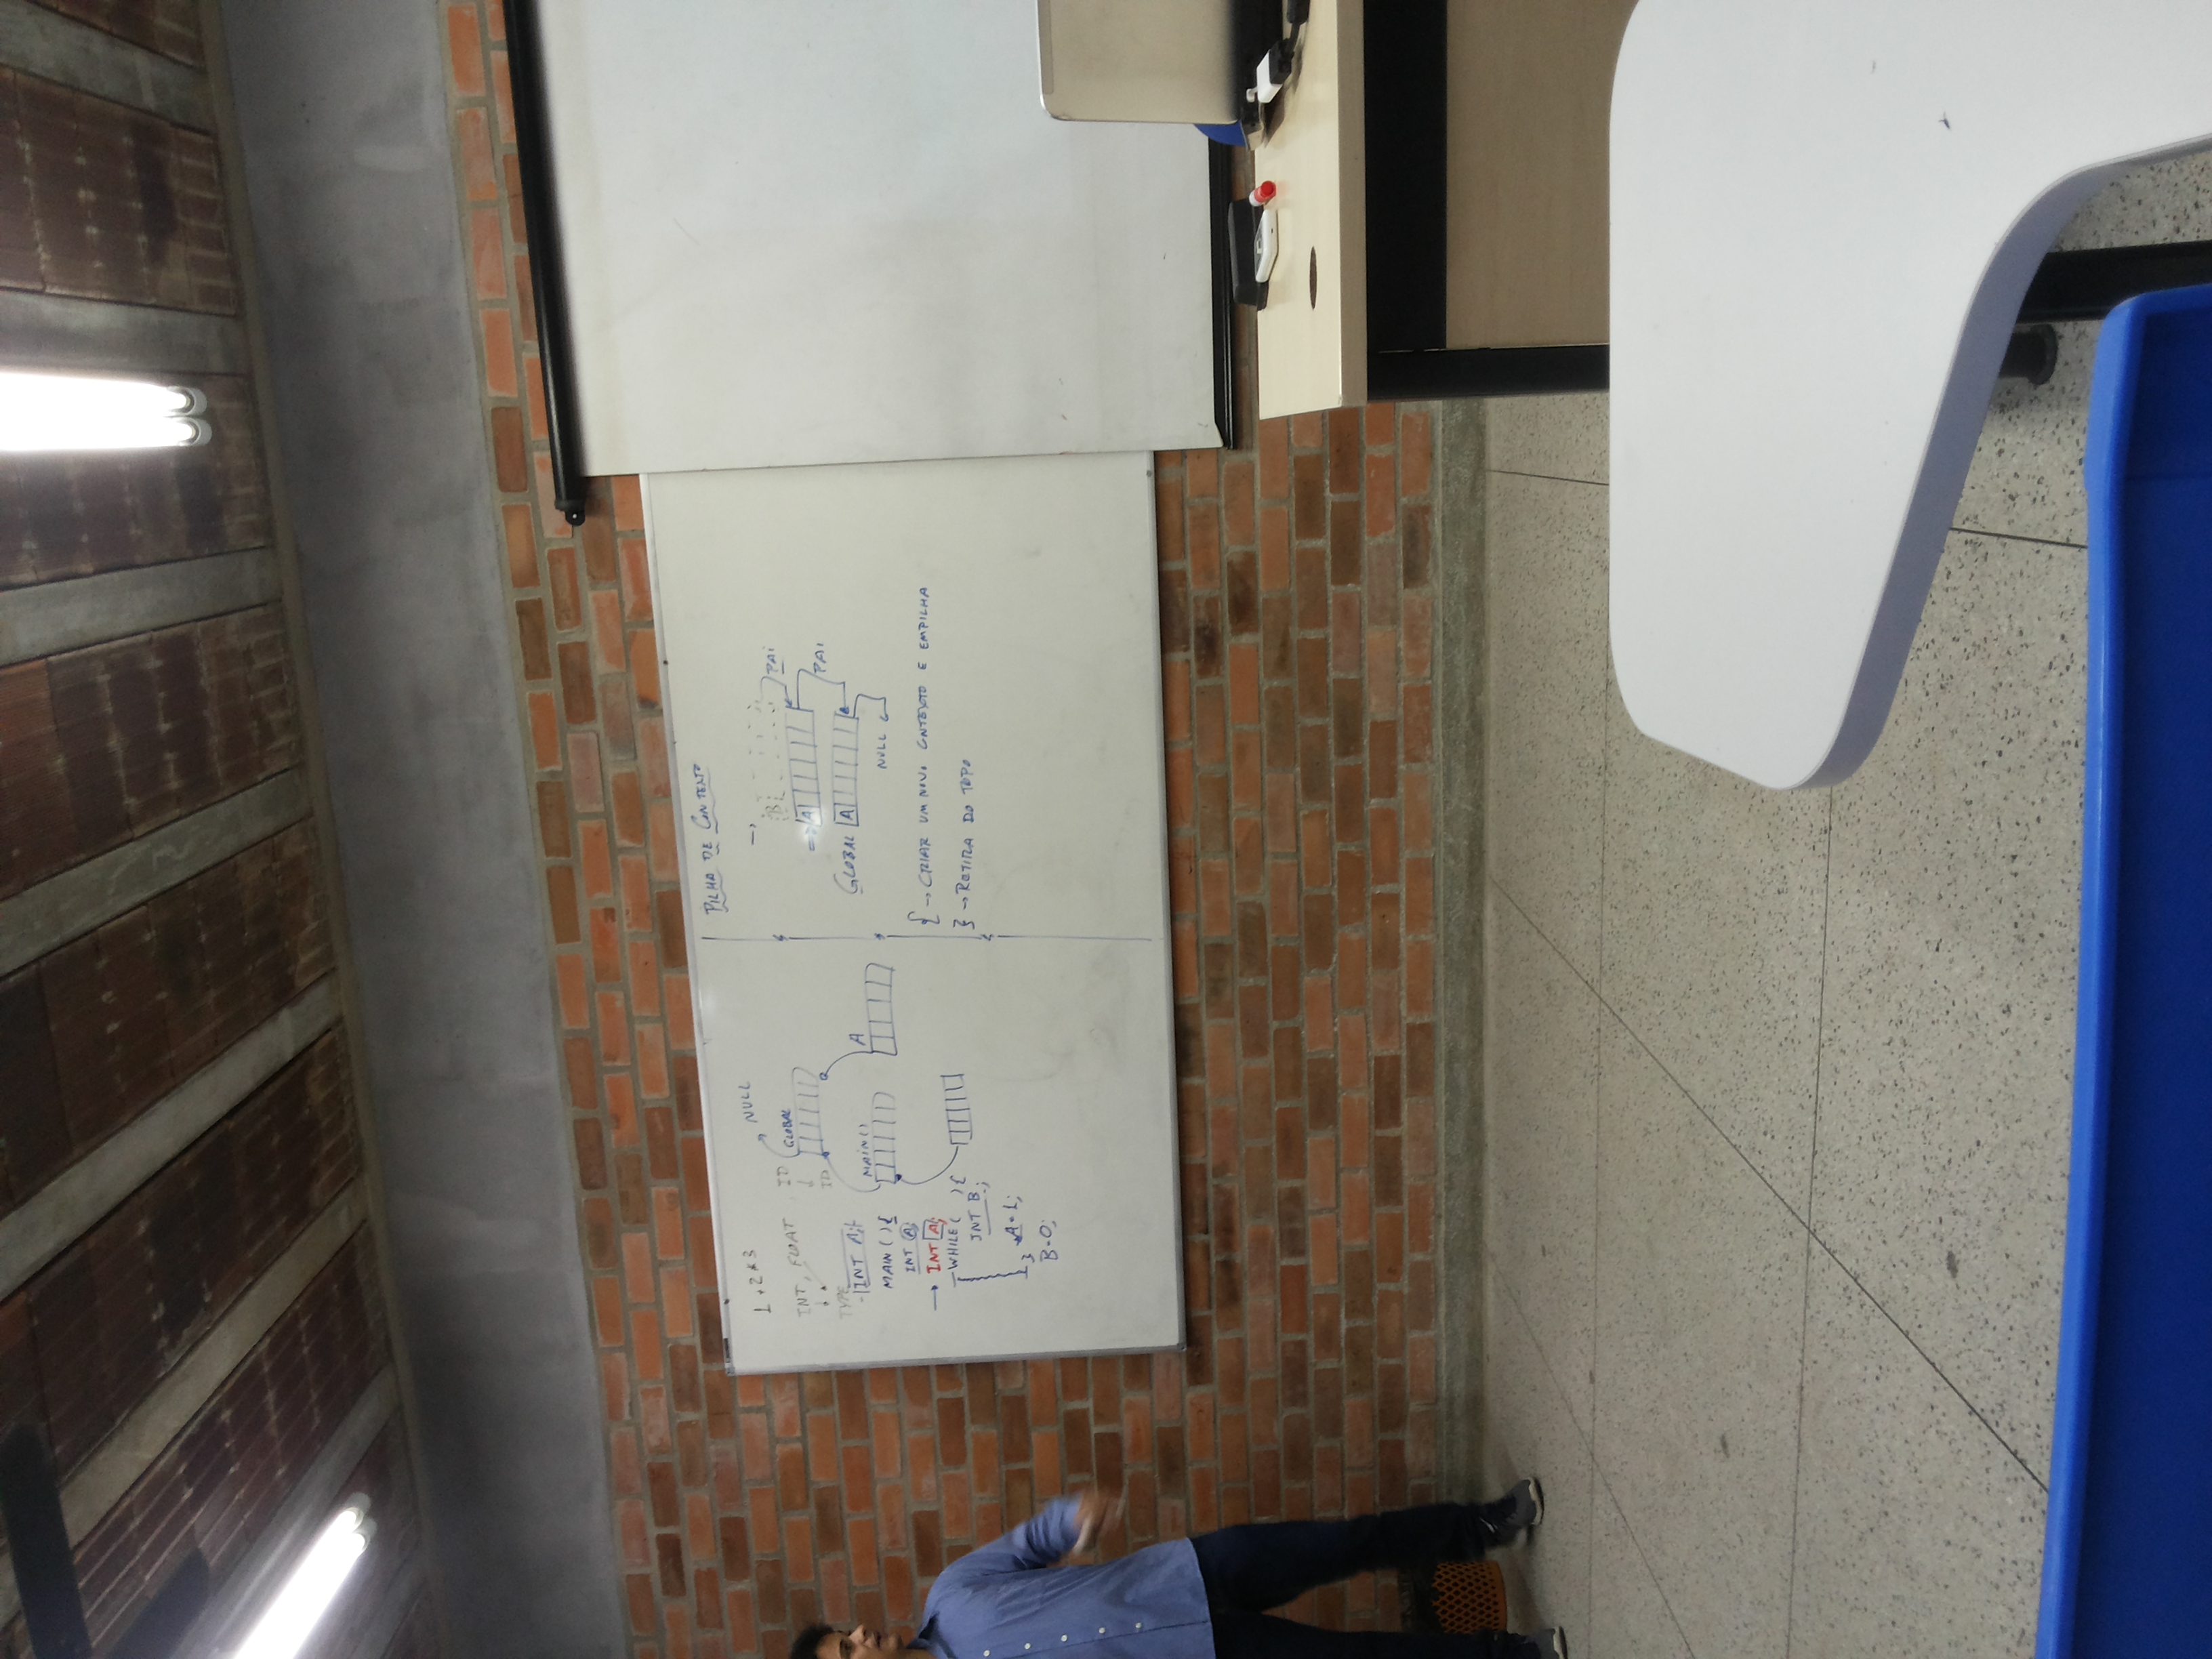 1+2*3
INT, FLOAT
TYPE
INT A;
MAIN(){
INT A;
→ INT A;
WHILE( ){
INT B;
A=1;
}
B=0;
NULL
ID
↓
ID
GLOBAL
MAIN()
A
PILHA DE CONTEXTO
→
B
PAI
⇒ A
PAI
GLOBAL A
NULL
{ → CRIAR UM NOVO CONTEXTO E EMPILHA
} → RETIRA DO TOPO